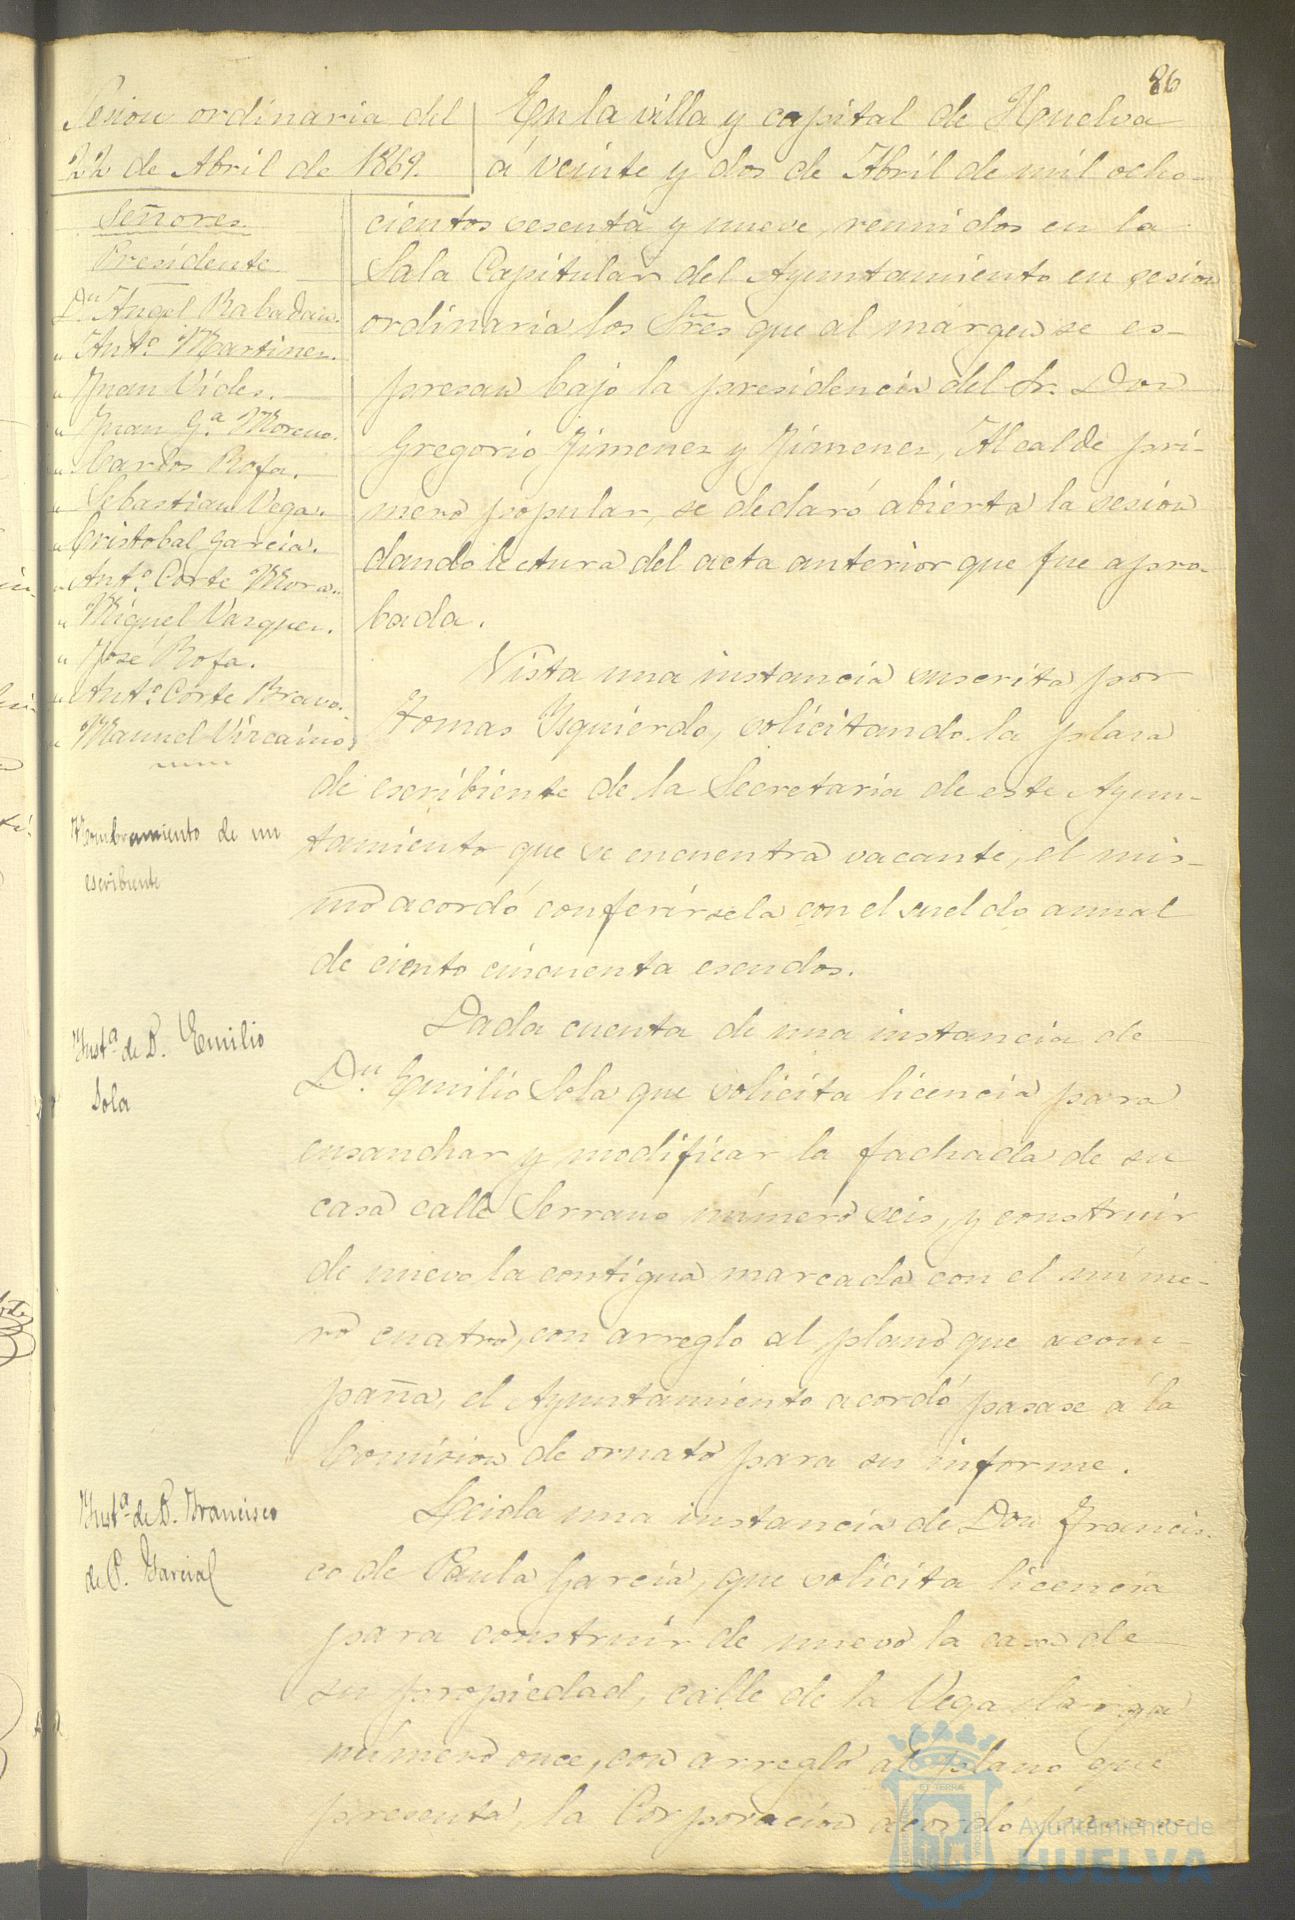 86
Sesion ordinaria del
22 de Abril de 1869.
Señores
Presidente
Dn Angel Rabadan.
" Anto. Martinez.
" Juan Vides.
" Juan Ga. Moreno.
" Carlos Rofa.
" Sebastian Vega.
" Cristobal Garcia.
" Anto. Corte Mora.
" Miguel Vazquez.
" José Rofa.
" Anto. Corte Bravo.
" Manuel Vizcaino
En la villa y capital de Huelva
á veinte y dos de Abril de mil ocho-
cientos sesenta y nueve, reunidos en la
Sala Capitular del Ayuntamiento en sesion
ordinaria los Sres que al margen se es-
presan bajo la presidencia del Sr. Don
Gregorio Jimenez y Jimenez, Alcalde pri-
mero popular, se declaró abierta la sesion
dando lectura del acta anterior que fue apro-
bada.
Nombramiento de un
escribiente
Vista una instancia suscrita por
Tomas Ysquierdo, solicitando la plaza
de escribiente de la Secretaria de este Ayun-
tamiento que se encuentra vacante, el mis-
mo acordó conferirsela con el sueldo anual
de ciento cincuenta escudos.
Ynsta de D. Emilio
Sola
Dada cuenta de una instancia de
Dn Emilio Sola que solicita licencia para
ensanchar y modificar la fachada de su
casa calle Serrano número seis, y construir
de nuevo la contigua marcada con el núme-
ro cuatro, con arreglo al plano que acom-
paña, el Ayuntamiento acordó pasase á la
Comision de ornato para su informe.
Ynsta de D. Francisco
de P. Garcia
Leida una instancia de Don Francis-
co de Paula Garcia, que solicita licencia
para construir de nuevo la casa de
su propiedad, calle de la Vega larga
número once, con arreglo al plano que
presenta, la Corporacion acordó pasase
Ayuntamiento de
HUELVA